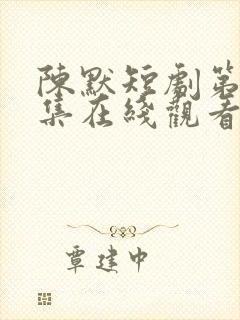 陳默短劇第
集在綫觀看
覃建中